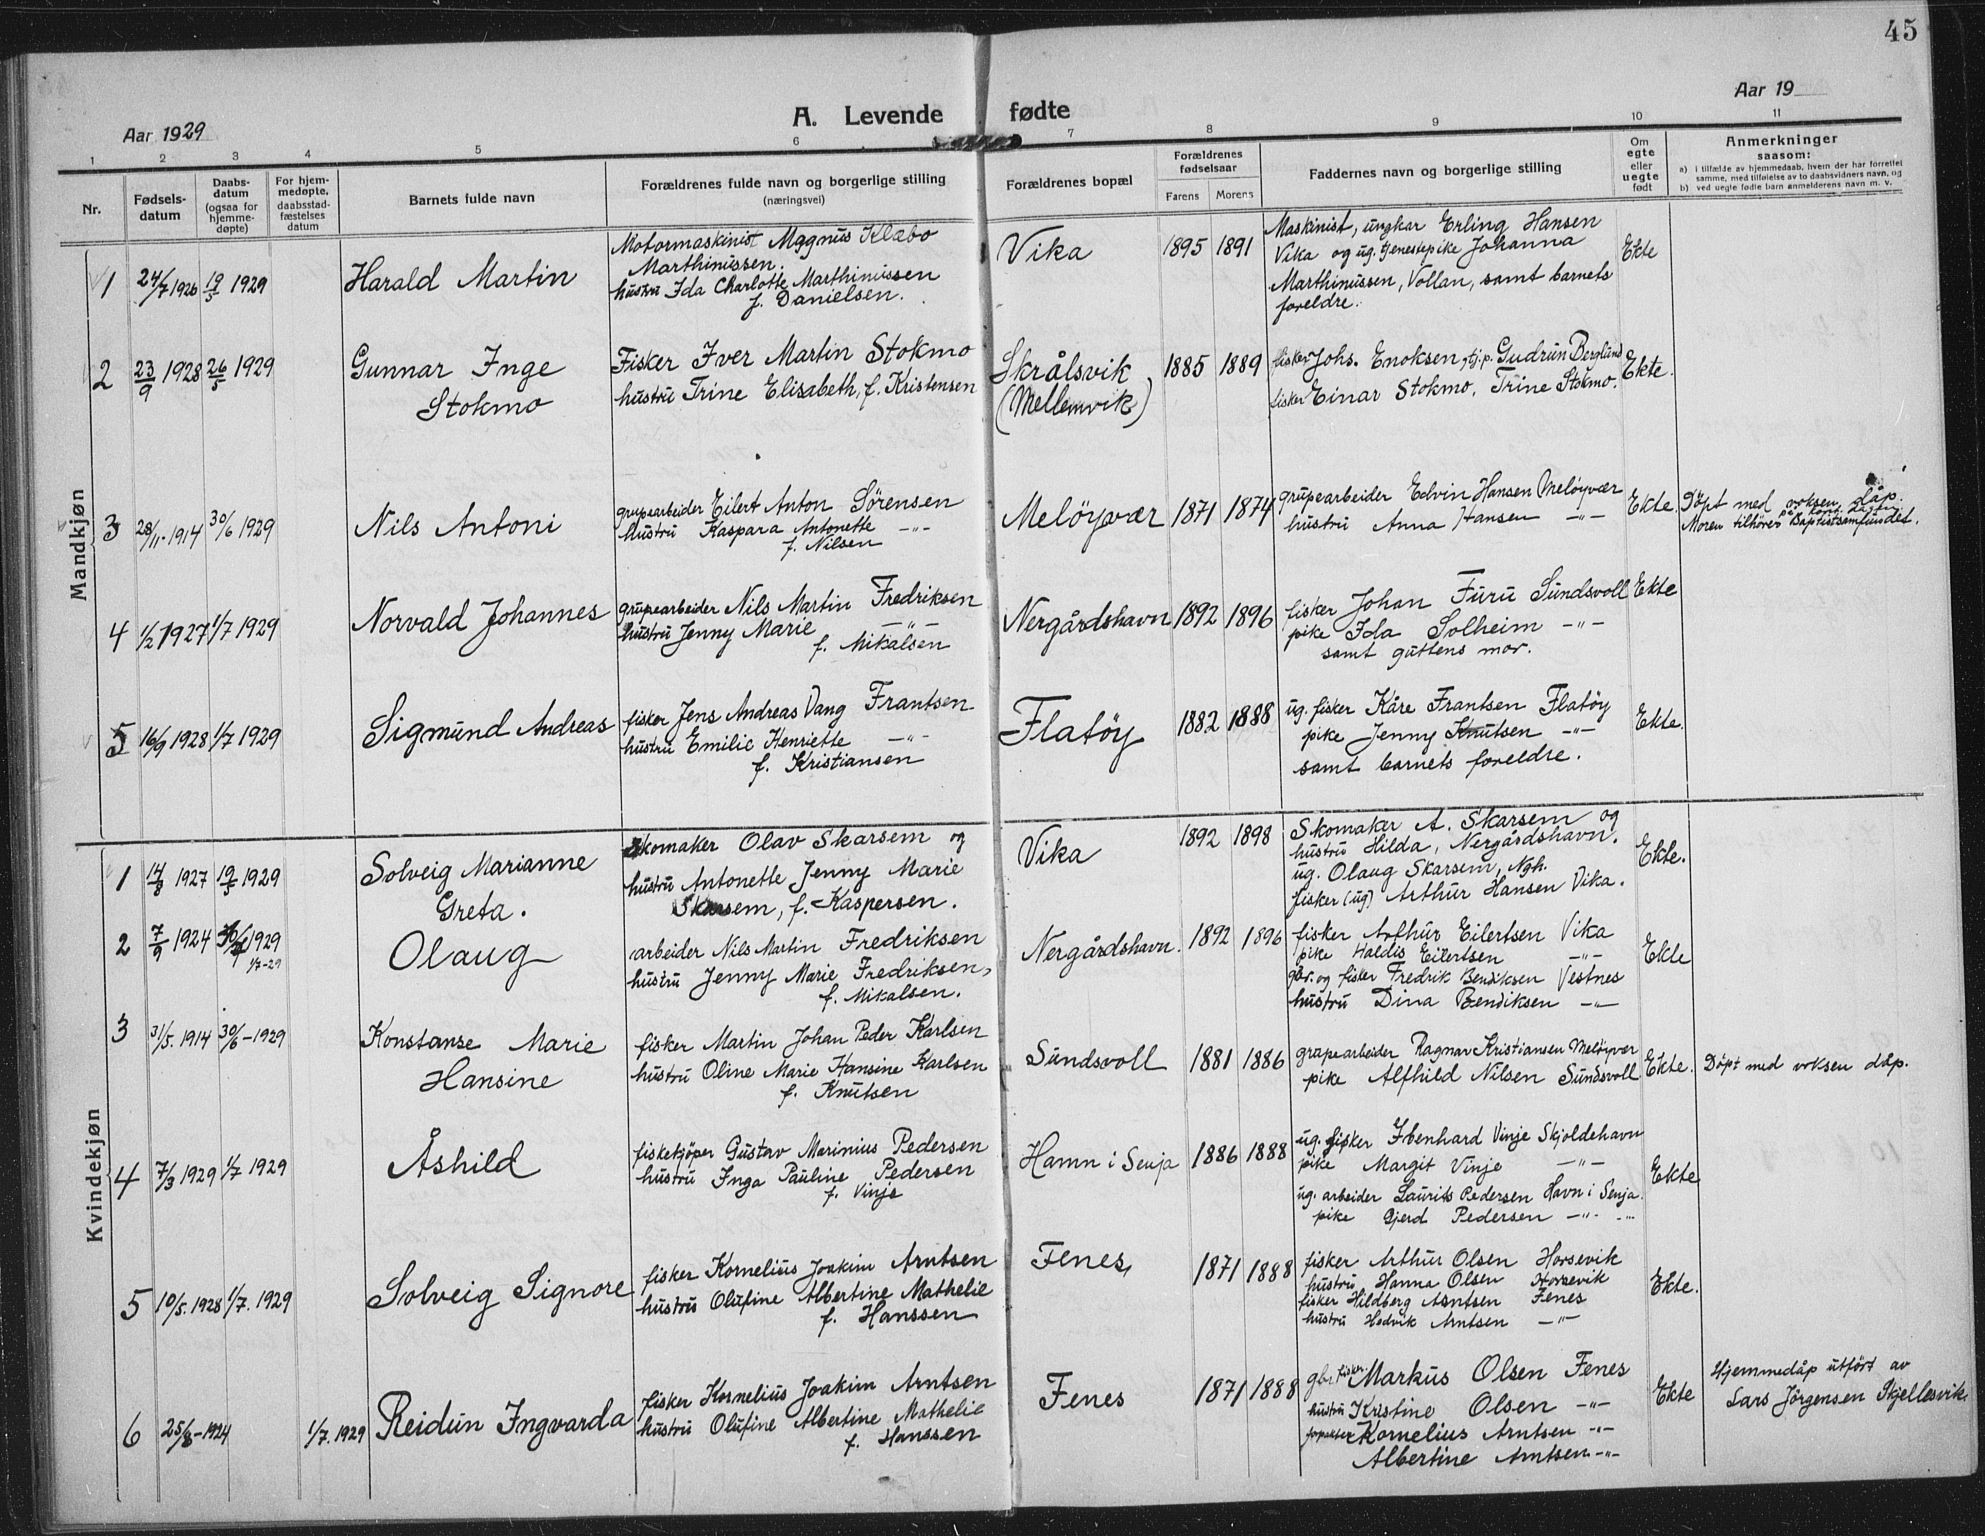 45
Aar 1929
A. Levende fødte
Aar 19
1 2 3 4 5 6 7 8 9 10 11
Nr.
Fødsels-datum
Daabs-datum (ogsaa for hjemme-døpte)
For hjem-medøpte, daabsstad-fæstelses datum
Barnets fulde navn
Forældrenes fulde navn og borgerlige stilling
(næringsvei)
Forældrenes bopæl
Forældrenes fødselsaar
Farens Morens
Faddernes navn og borgerlige stilling
Om egte eller uegte født
Anmerkninger
saasom:
a) i tilfælde av hjemmedaab, hvem der har forrettet
samme, med tilføielse av to daabsvidners navn, og
b) ved uegte fødte barn anmelderens navn m. v.
Mandkjøn
1 24/7 1926 19/5 1929 Harald Martin
Motormaskinist Magnus Klæbo
Marthinussen.
hustru Ida Charlotte Marthinussen
f. Danielsen.
Vika 1895 1891
Maskinist, ungkar Erling Hansen
Vika og ug. tjenestepike Johanna
Marthinussen, Vollan, samt barnets
foreldre.
Ekte
2 23/9 1928 26/5 1929 Gunnar Inge
Stokmo
Fisker Iver Martin Stokmo
hustru Trine Elisabeth, f. Kristensen
Skrålsvik
(Mellemvik)
1885 1889
fisker Johs. Enoksen, tj.p. Gudrun Berglund
fisker Einar Stokmo, Trine Stokmo.
Ekte.
3 28/11. 1914 30/6 1929 Nils Antoni
grupearbeider Eilert Anton Sørensen
hustru Kaspara Antonette -"-
f. Nilsen
Meløyvær 1871 1874
grupearbeider Edvin Hansen Meløyvær
hustru Anna Hansen -"-
Ekte.
Døpt med voksen dåp.
Moren tilhører Baptistsamfundet.
4 1/2 1927 1/7 1929 Norvald Johannes
grupearbeider Nils Martin Fredriksen
hustru Jenny Marie -"-
f. Mikalsen
Nergårdshavn 1892 1896
fisker Johan Furu Sundsvoll
pike Ida Solheim -"-
samt guttens mor.
Ekte
5 16/9 1928 1/7 1929 Sigmund Andreas
fisker Jens Andreas Vang Frantsen
hustru Emilie Henriette -"-
f. Kristiansen
Flatøy 1882 1888
ug. fisker Kåre Frantsen Flatøy
pike Jenny Knutsen -"-
samt barnets foreldre.
Ekte.
Kvindekjøn
1 14/8 1927 19/5 1929 Solveig Marianne
Greta.
Skomaker Olav Skarsem og
hustru Antonette Jenny Marie
Skarsem, f. Kaspersen.
Vika 1892 1898
Skomaker A. Skarsem og
hustru Hilda, Nergårdshavn.
ug. Olaug Skarsem, Ngh.
fisker (ug) Arthur Hansen Vika.
Ekte.
2 7/9 1924 1929
1/7-29
Olaug
arbeider Nils Martin Fredriksen
hustru Jenny Marie Fredriksen,
f. Mikalsen.
Nergårdshavn. 1892 1896
fisker Arthur Eilertsen Vika
pike Haldis Eilertsen -"-
gbr. og fisker Fredrik Bendiksen Vestnes
hustru Dina Bendiksen -"-
Ekte
3 31/5. 1914 30/6-1929 Konstanse Marie
Hansine
fisker Martin Johan Peder Karlsen
hustru Oline Marie Hansine Karlsen
f. Knutsen
Sundsvoll 1881 1886
grupearbeider Ragnar Kristiansen Meløyvær
pike Alfhild Nilsen Sundsvoll
Ekte.
Døpt med voksen dåp.
4 7/3 1929 1/7 1929 Åshild
fiskekjøper Gustav Marinius Pedersen
hustru Inga Pauline Pedersen
f. Vinje
Hamn i Senja 1886 1888
ug. fisker Ibenhard Vinje Skjoldehavn
pike Margit Vinje -"-
ug. arbeider Laurits Pedersen Havn i Senja.
pike Gjerd Pedersen -"- -"-
Ekte
5 10/5. 1928 1/7. 1929 Solveig Signore
fisker Kornelius Joakim Arntsen
hustru Olufine Albertine Mathelie
f. Hanssen
Fenes 1871 1888
fisker Arthur Olsen Horsevik
hustru Hanna Olsen Horsevik
fisker Hildberg Arntsen Fenes
hustru Hedvik Arntsen -"-
Ekte.
6 25/8-1924 1/7. 1929 Reidun Ingvarda
fisker Kornelius Joakim Arntsen
hustru Olufine Albertine Mathelie
f. Hanssen
Fenes 1871 1888
gbr. fisker Markus Olsen Fenes
hustru Kristine Olsen -"-
Kornelius Arntsen -"-
Albertine Arntsen -"-
Ekte
Hjemmedåp utført av
Lars Jörgensen Skjellesvik.